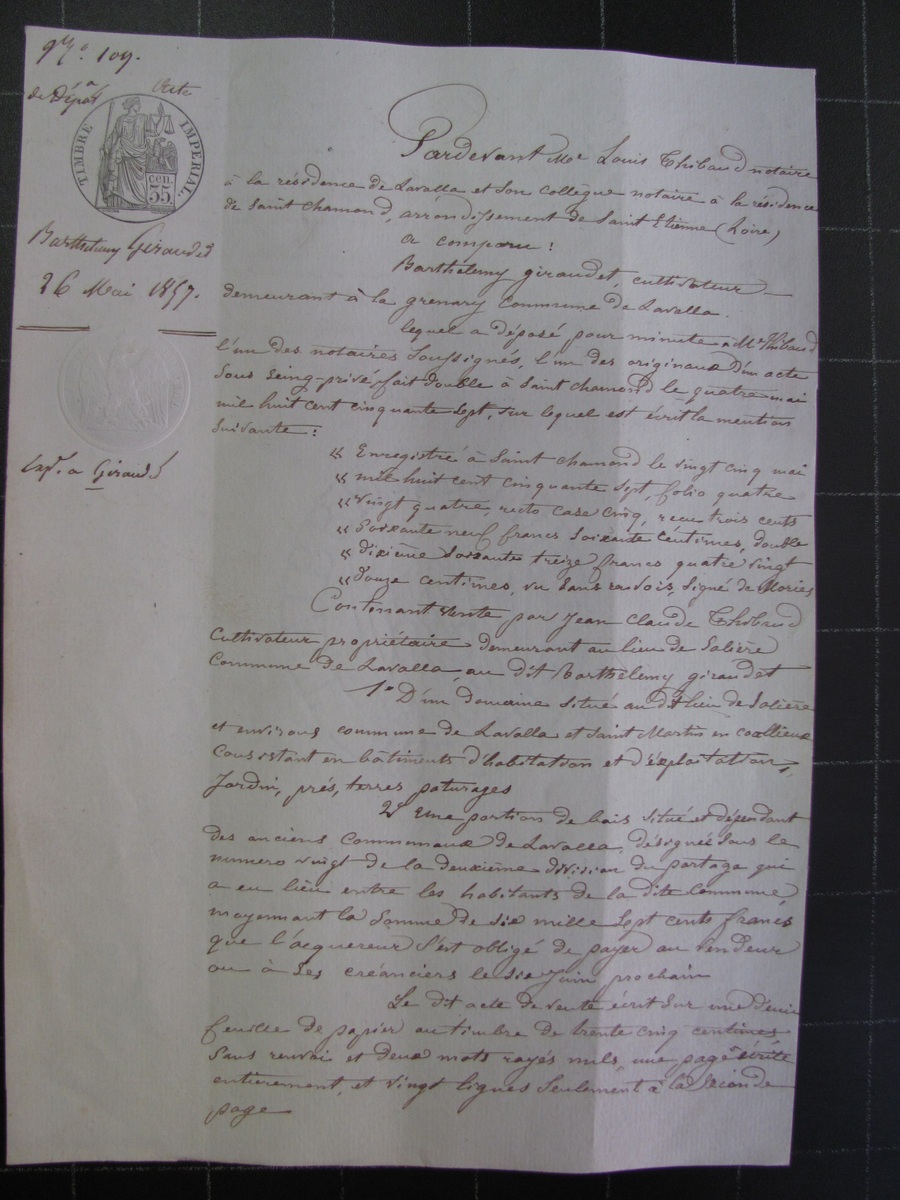 109.
de Dépôt Acte
TIMBRE IMPERIAL
cen
35
Barthelemy Giraudet
26 Mai 1857.
Exp. a Giraudet
Pardevant Me Louis Thibaud notaire
à la résidence de Lavalla et son collègue notaire à la résidence
de Saint Chamond, arrondissement de Saint Etienne (Loire)
a comparu :
Barthélemy giraudet, cultivateur
demeurant à la grenary Commune de Lavalla.
lequel a déposé pour minute a Me Thibaud
l'un des notaires Soussignés, l'un des originaux d'un acte
Sous Seing-privé, fait double à Saint chamond le quatre mai
mil huit cent cinquante Sept, sur lequel est écrit la mention
Suivante :
« Enregistré à Saint chamond le vingt cinq mai
« mil huit cent cinquante Sept, folio quatre
« vingt quatre, recto Case cinq, recu trois cents
« Soixante neuf francs Soixante Centimes, double
« dixième Soixante treize francs quatre vingt
« douze centimes, vu Sans renvois, Signé de Mories
Contenant vente par Jean Claude Thibaud
Cultivateur propriétaire demeurant au lieu de Salière
Commune de Lavalla, au dit Barthélemy giraudet
1° D'un domaine Situé au dit lieu de Salière
et environs commune de Lavalla et Saint Martin en coallieux
Consistant en bâtiments d'habitation et d'éxploitation,
Jardin, prés, terres paturages
2° Une portion de bois Situé et dépendant
des anciens Communaux de Lavalla, désignée Sous le
numero vingt de la deuxième division du partage qui
a eu lieu entre les habitants de la dite Commune
moyennant la Somme de Six mille Sept cents francs
que l'acquereur S'est obligé de payer au vendeur
ou à Ses créanciers le Six Juin prochain
Le dit acte de vente écrit Sur une demi
feuille de papier au timbre de trente cinq centimes
Sans renvoi et deux mots rayés nuls, une page écrite
entièrement, et vingt lignes Seulement à la Séconde
page